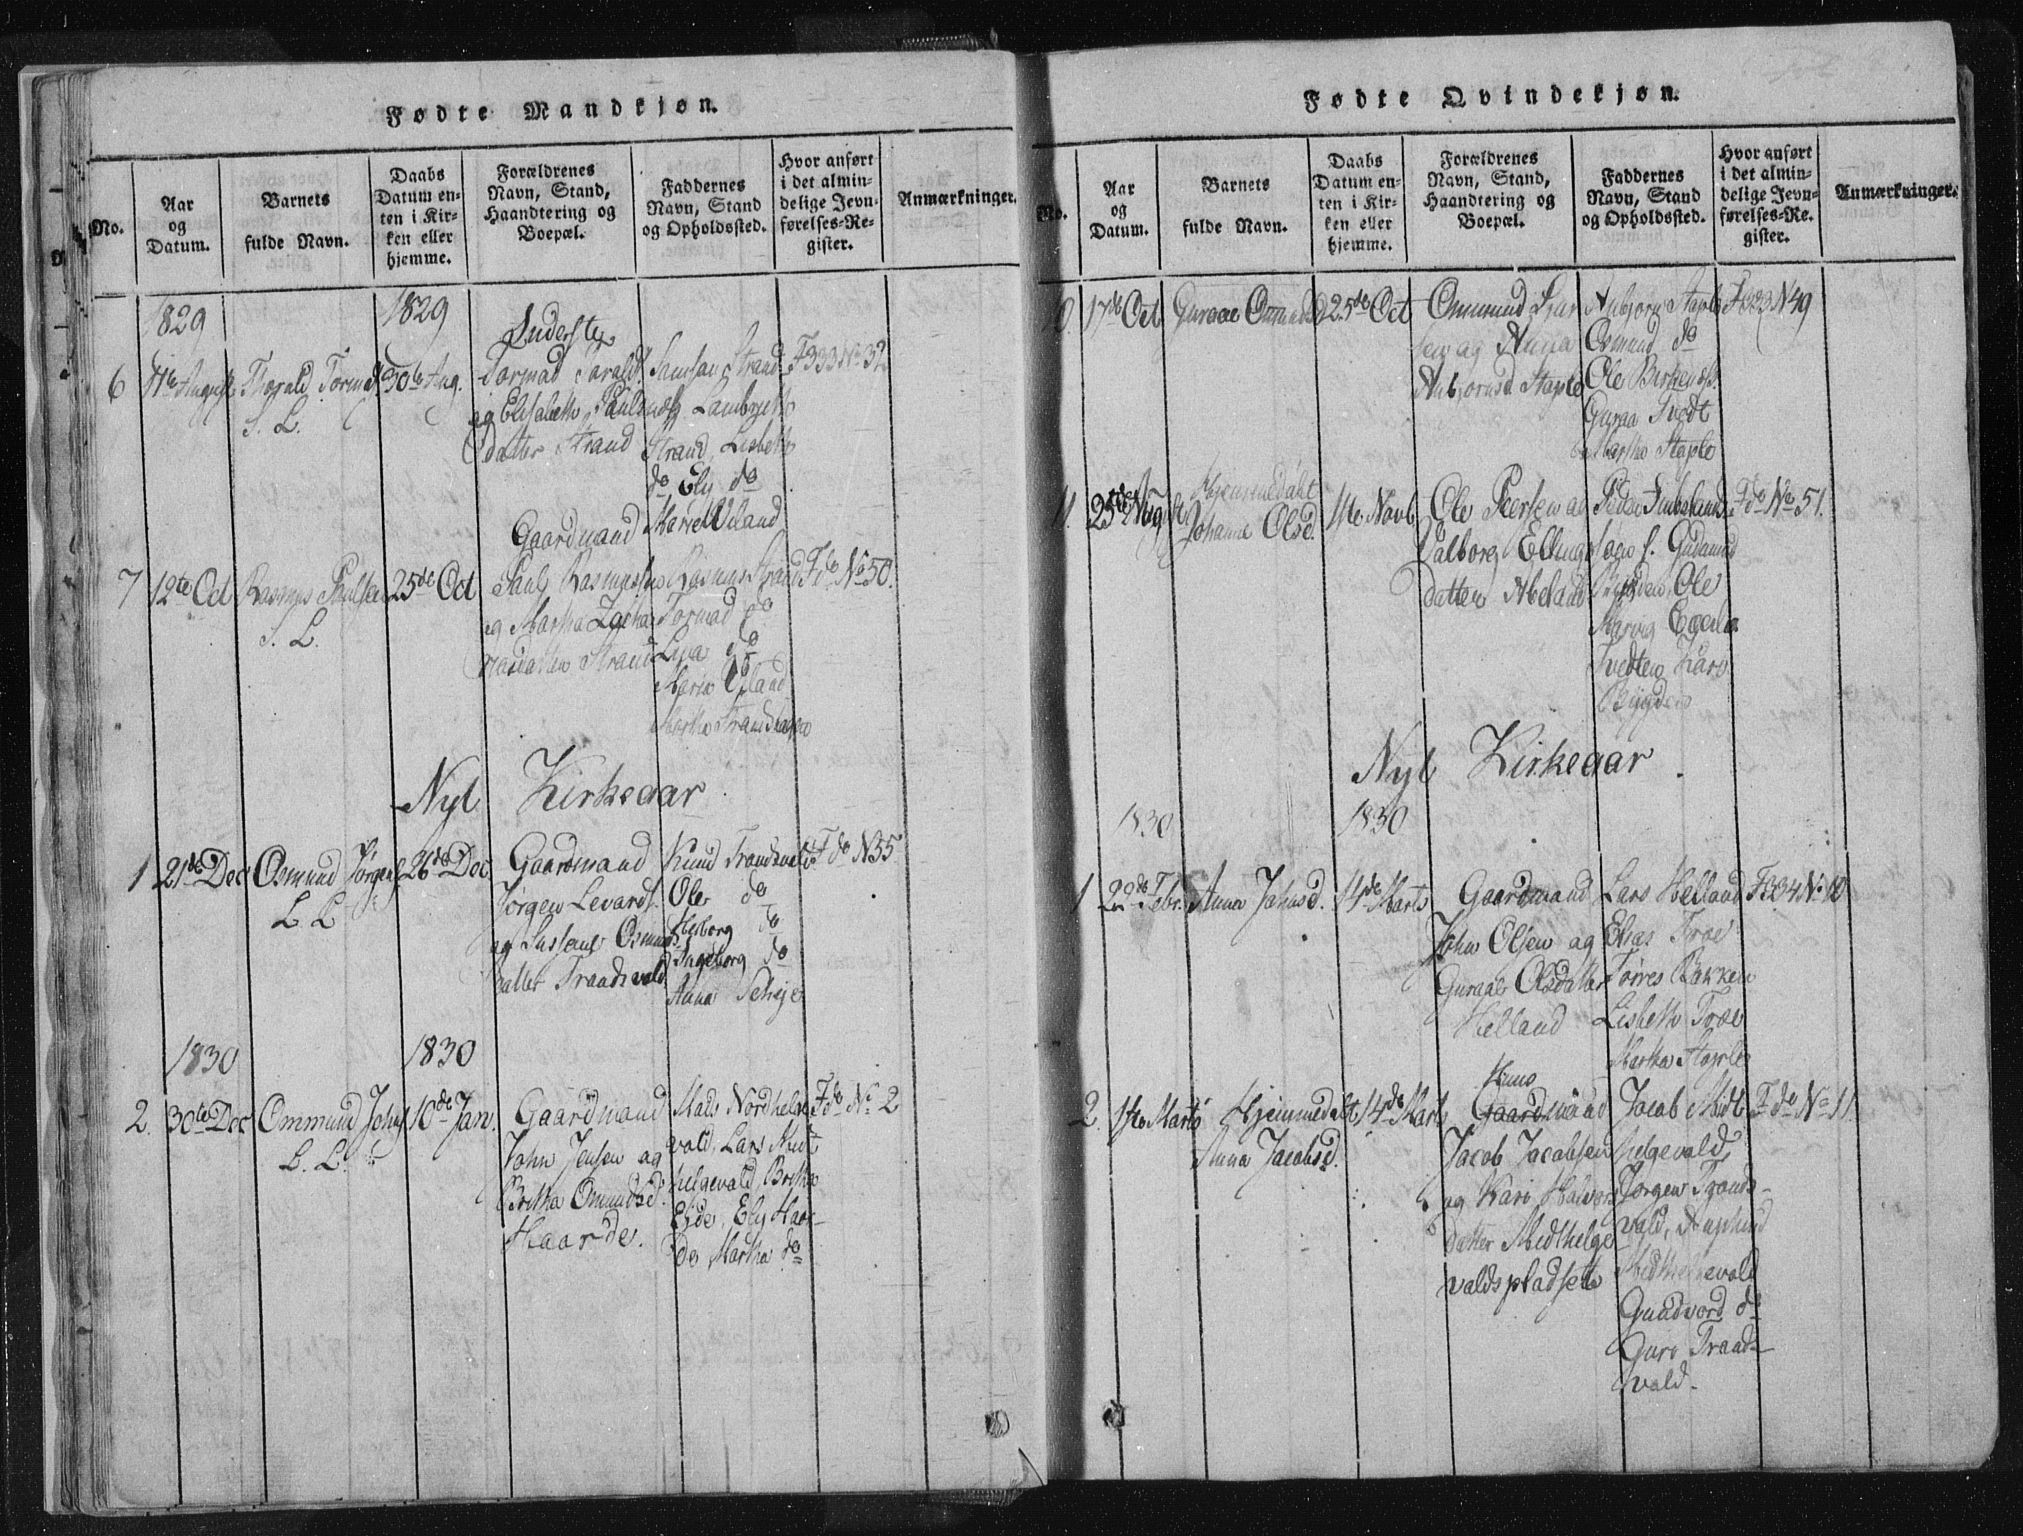 Fødte Mandkjøn.
No.
Aar
og
Datum.
Barnets
fulde Navn.
Daabs
Datum en-
ten i Kir-
ken eller
hjemme.
Forældrenes
Navn, Stand,
Haandtering og
Boepæl.
Faddernes
Navn, Stand
og Opholdssted.
Hvor anført
i det almin-
delige Jevn-
førelses-Re-
gister.
Anmærkninger.
1829
1829
6
August
Thorald Tormods
S. L.
30te Aug.
Inderste
Tormod Taralds
og Elisabeth Pauls
datter Strand
Samson Strand
Lambrgth
Strand, Lisbeth
do Ely do
Marre Uland
F 333 No 32
7
12te Oct
Rasmus Paulsen
S. L.
25de Oct
Gaardmand
Paul Rasmussen
og Martha Zacha-
riasdatter Strand
Rasmus Strand
Tormod do
Liva do
Maria Uland
Martha Strandskogen
F do No 50.
Nyt Kirkeaar
1
21de Dec
Osmund Jørgens
L L
26de Dec
Gaardmand
Jørgen Levards.
og Sussane Osmunds
datter Traadsvold
Knud Traadsvold
Ole do
Herborg do
Ingeborg do
Anna
F do N 55
1830
1830
2.
30te Dec
Ommund Johns
L. L.
10de Jan.
Gaardmand
John Jensen og
Britha Omundsd
Haarde.
Mads Nordhelge
vold, Lars Midt
helgevold, Britha
Eide, Ely Haar-
de Martha do
F do No 2
Fødte Qvindekjøn.
No.
Aar
og
Datum.
Barnets
fulde Navn.
Daabs
Datum en-
ten i Kir-
ken eller
hjemme.
Forældrenes
Navn, Stand,
Haandtering og
Boepæl.
Faddernes
Navn, Stand
og Opholdssted.
Hvor anført
i det almin-
delige Jevn-
førelses-Re-
gister.
Anmærkninger.
10
17de Oct
Guraae Ommunds
25de Oct
Ommund Ivar
sen og Anna
Anbjørnsd Staple
Anbjørn Staple
Osmund do
Ole Birkenæss.
Guraa Tvedt
Martha Staple
F 333 N 49
11.
Hjemmedøbt
Johanna Olsd.
1te Novb
Ole Peersen og
Valborg Ellings
datter Abeland
Gudmund
Bugden, Ole
Marvig
Tvedten Kari
Bugden
F do No 51.
Nyt Kirkeaar
1830
1830
1
22de Febr.
Anna Johnsd.
14de Marts
Gaardmand
John Olsen og
Guraae Olsdatter
Helland
Lars Helland
Elias Troe
Torres Bakken
Lisbeth Troe
Martha Staple
F 334 No 10
2
1te Marts
Hjemmedøbt
Anna Jacobsd.
14de Marts
Huus
Gaardmand
Jacob Jacobsen
og Kari Halvors
datter Midthelge
valdspladsen
Jacob Midt
helgevold
Jørgen Traads-
vold, Asplund
Midthelgevold
Gundvord do
Guri Traads-
vold.
F do No 11